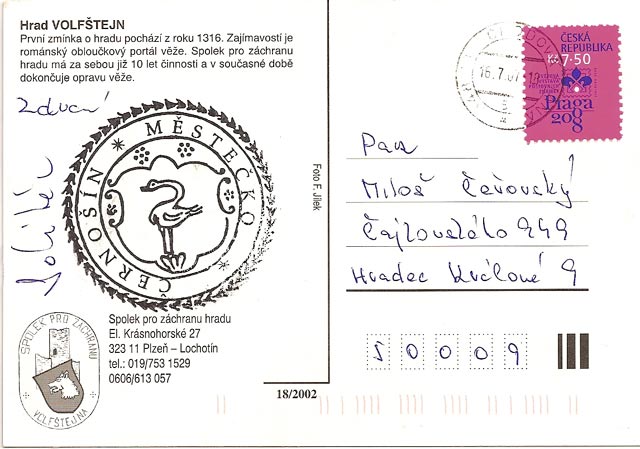 Hrad VOLFŠTEJN
První zmínka o hradu pochází z roku 1316. Zajímavostí je
románský obloučkový portál věže. Spolek pro záchranu
hradu má za sebou již 10 let činnosti a v současné době
dokončuje opravu věže.
ČESKÁ
REPUBLIKA
Kč 7·50
Praga
2008
16.7.07
Zdraví
MĚSTEČKO
ČERNOŠÍN
Foto F. Jílek
Pan
Miloš
949
Hradec Králové 9
50009
Spolek pro záchranu hradu
El. Krásnohorské 27
323 11 Plzeň – Lochotín
tel.: 019/753 1529
0606/613 057
SPOLEK PRO ZÁCHRANU
VOLFŠTEJNA
18/2002